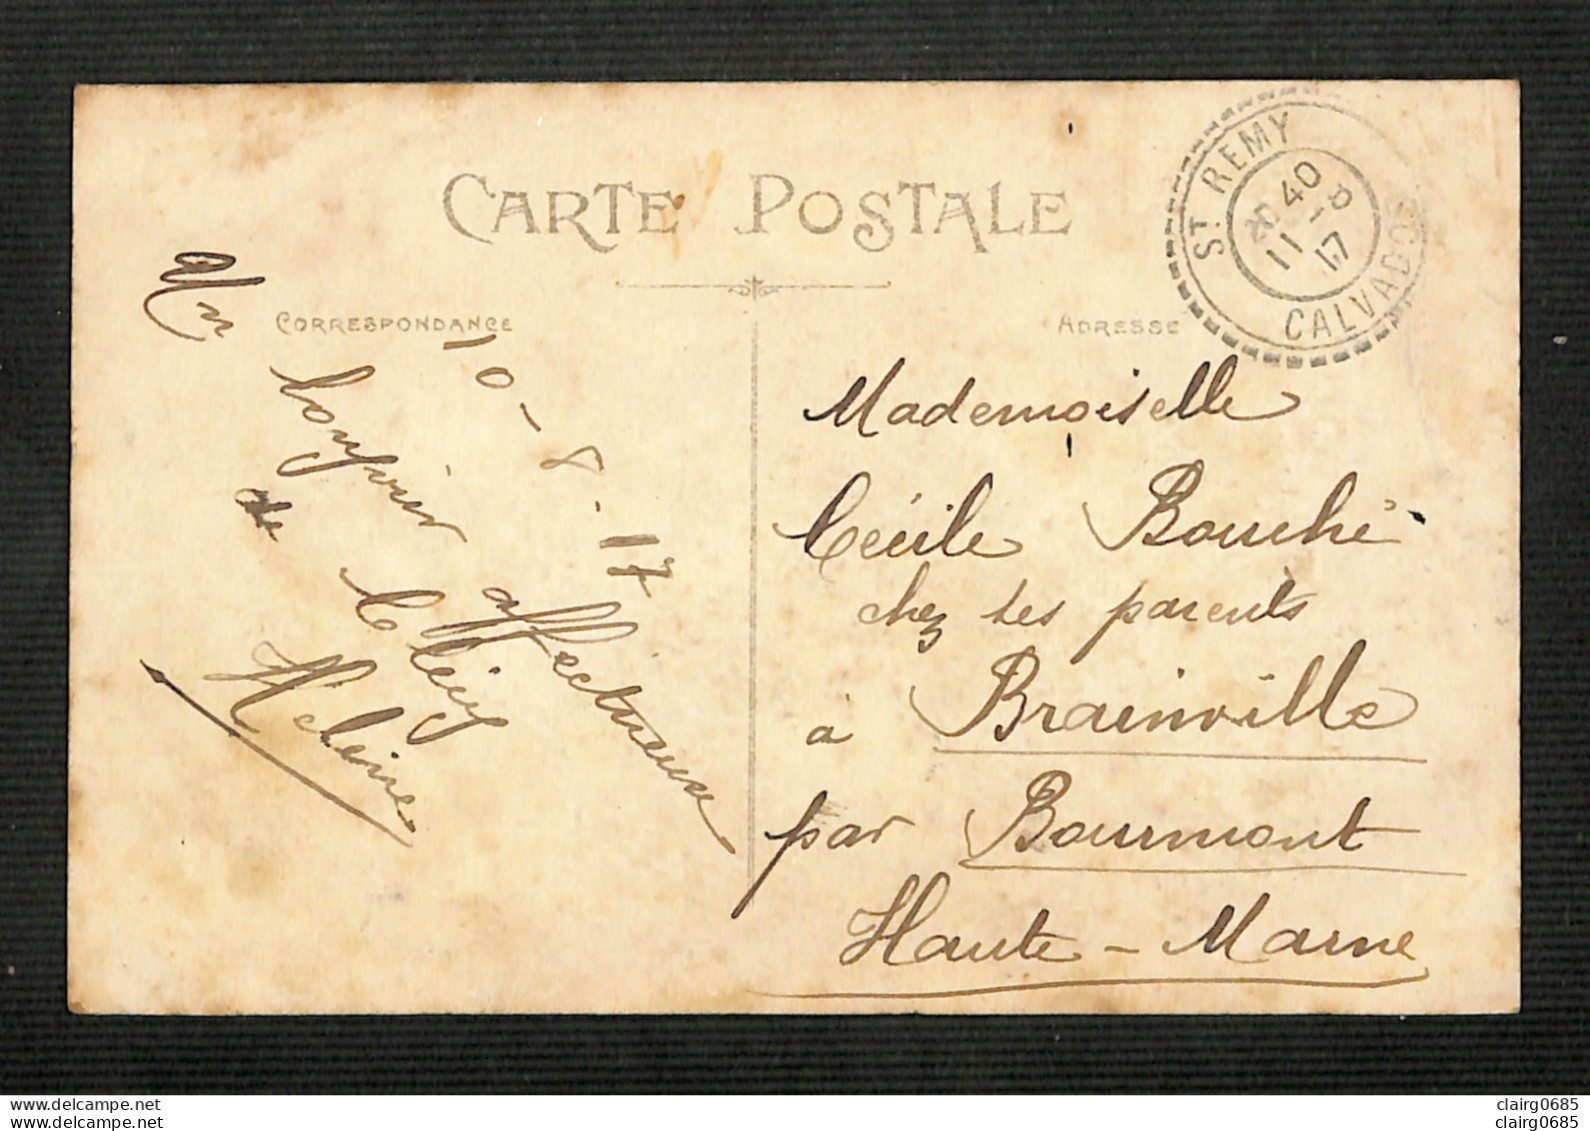 CARTE POSTALE
CORRESPONDANCE
ADRESSE
ST. REMY
20 40
11 - 8
17
CALVADOS
10 - 8 - 17
Un bonjour affectueux
de Clécy
Hélène
Mademoiselle
Cécile Bouché
chez ses parents
à Brainville
par Bourmont
Haute - Marne
www.delcampe.net
www.delcampe.net
clairg0685
clairg0685